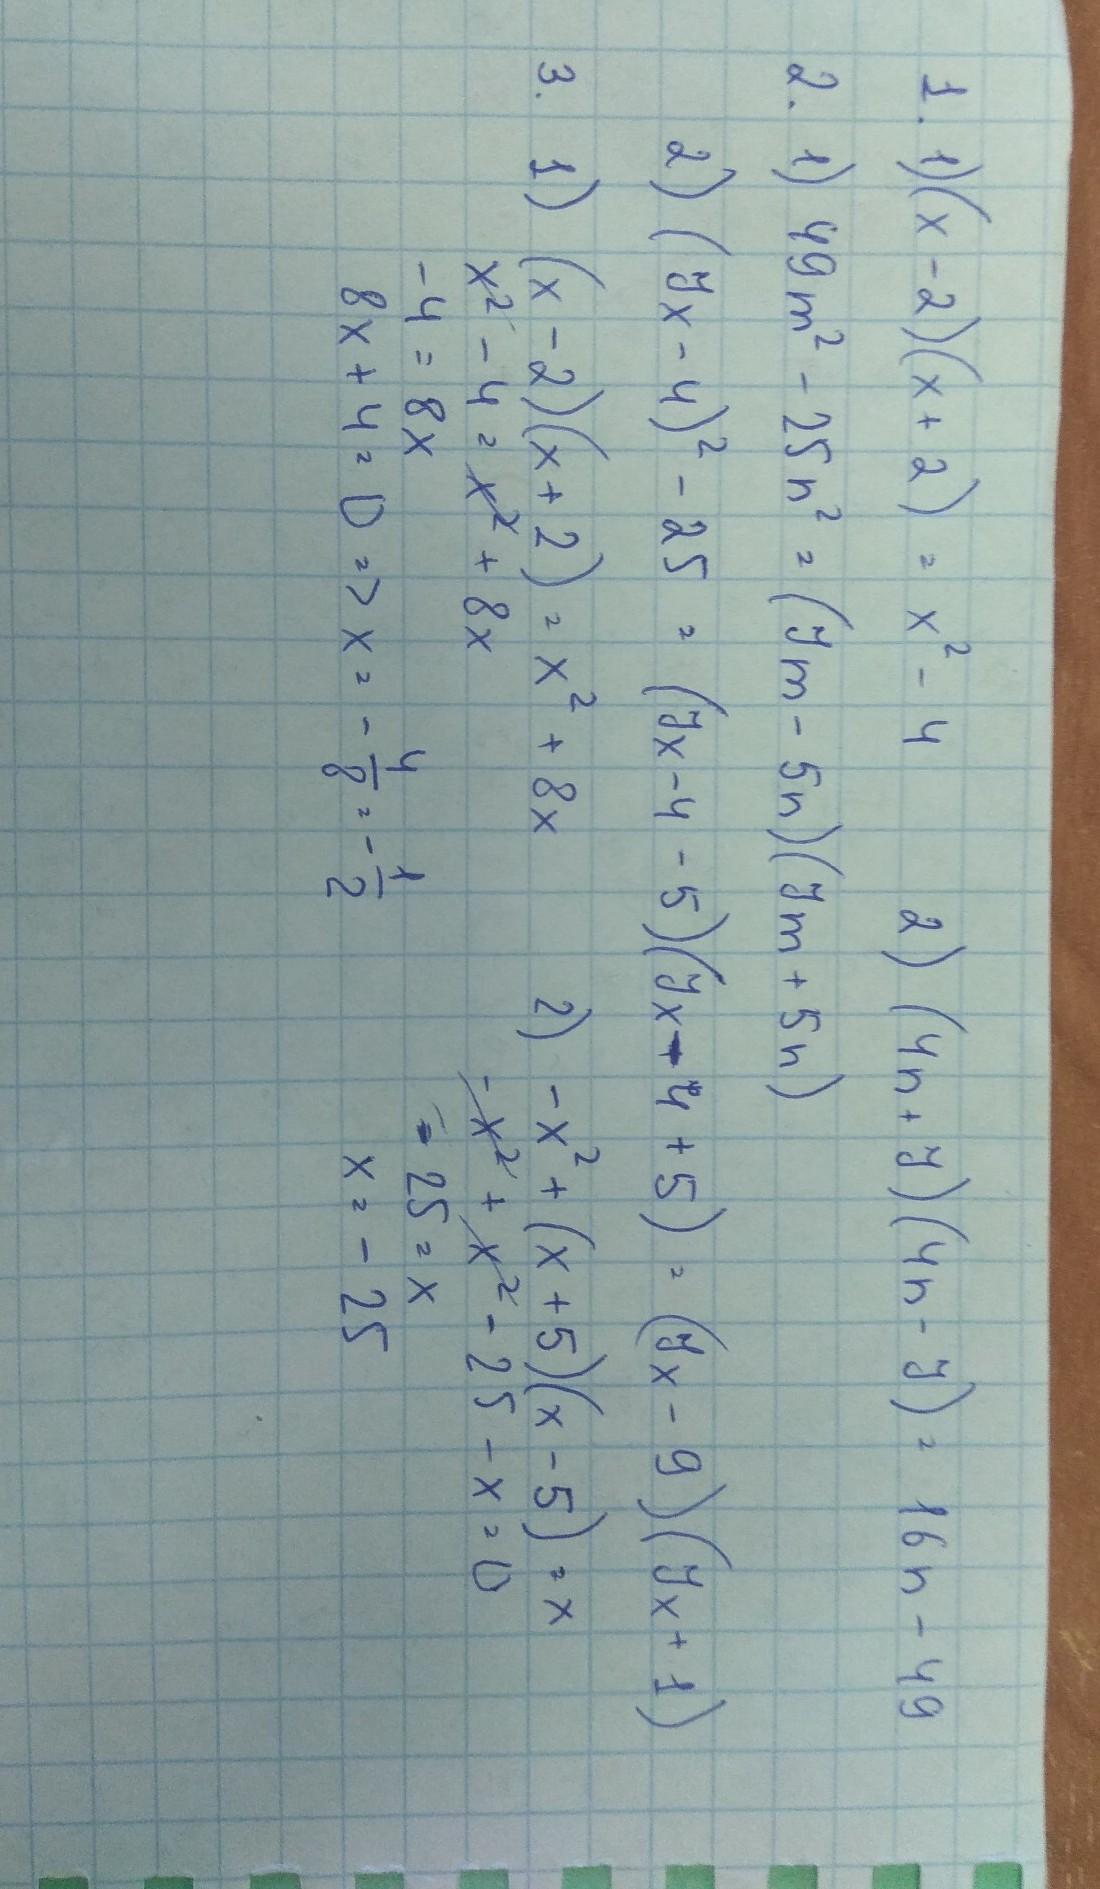 1. 1) (x - 2)(x + 2) = x² - 4 2) (4n + 7)(4n - 7) = 16n - 49
2. 1) 49m² - 25n² = (7m - 5n)(7m + 5n)
2) (7x - 4)² - 25 = (7x - 4 - 5)(7x - 4 + 5) = (7x - 9)(7x + 1)
3. 1) (x - 2)(x + 2) = x² + 8x 2) -x² + (x + 5)(x - 5) = x
x² - 4 = x² + 8x -x² + x² - 25 - x = 0
-4 = 8x - 25 = x
8x + 4 = 0 => x = - 4/8 = - 1/2 x = - 25